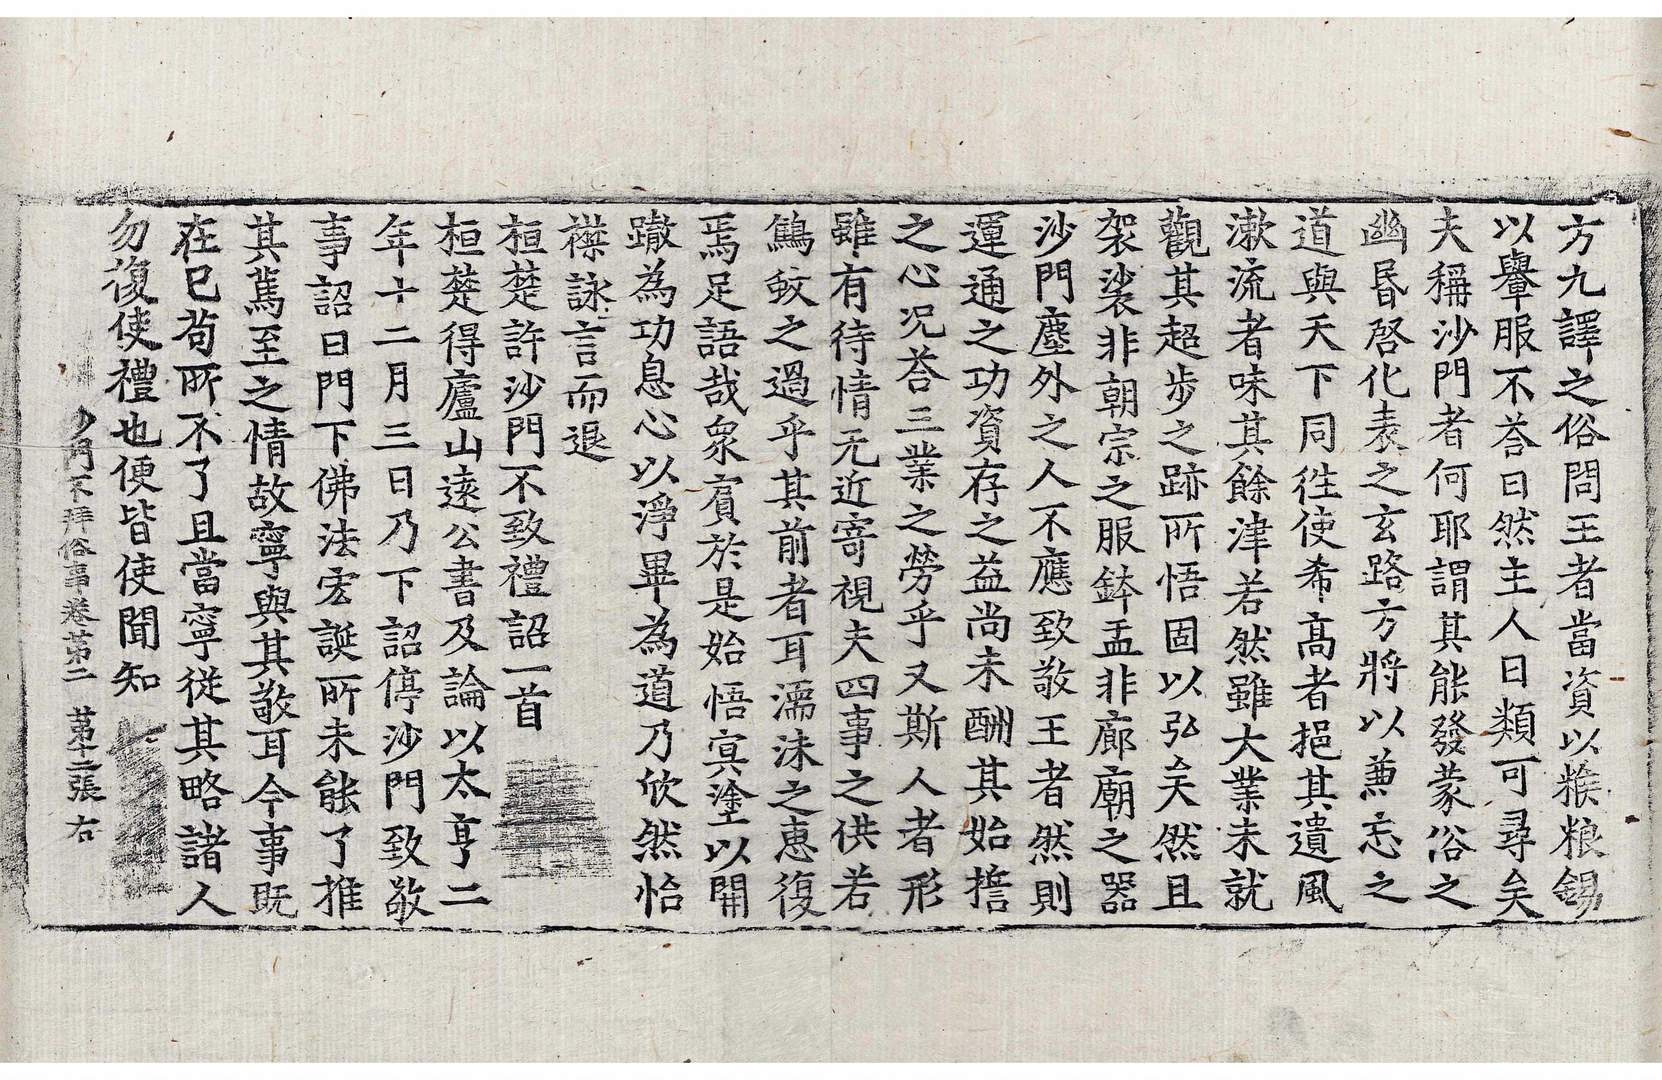 方九譯之俗問王者當資以糇粮錫
以轝服不荅曰然主人曰類可尋矣
夫稱沙門者何耶謂其能發蒙俗之
幽昏啓化表之玄路方將以兼忘之
道與天下同徃使希髙者挹其遺風
漱流者味其餘津若然雖大業未就
觀其超步之跡所悟固以弘矣然且
袈裟非朝宗之服鉢盂非廊廟之器
沙門塵外之人不應致敬王者然則
運通之功資存之益尚未酬其始擔
之心况荅三業之勞乎又斯人者形
雖有待情无近寄視夫四事之供若
鷦蚊之過乎其前者耳濡沫之惠復
焉足語哉衆賓於是始悟冥塗以開
轍為功息心以淨畢為道乃欣然怡
襟詠言而退
桓楚許沙門不致禮詔一首
桓楚得廬山遠公書及論以太亨二
年十二月三日乃下詔停沙門致敬
事詔曰門下佛法宏誕所未能了推
其篤至之情故寧與其敬耳今事既
在已苟所不了且當寧從其略諸人
勿復使禮也便皆使聞知
沙門不拜俗事卷苐二 苐十二張 右